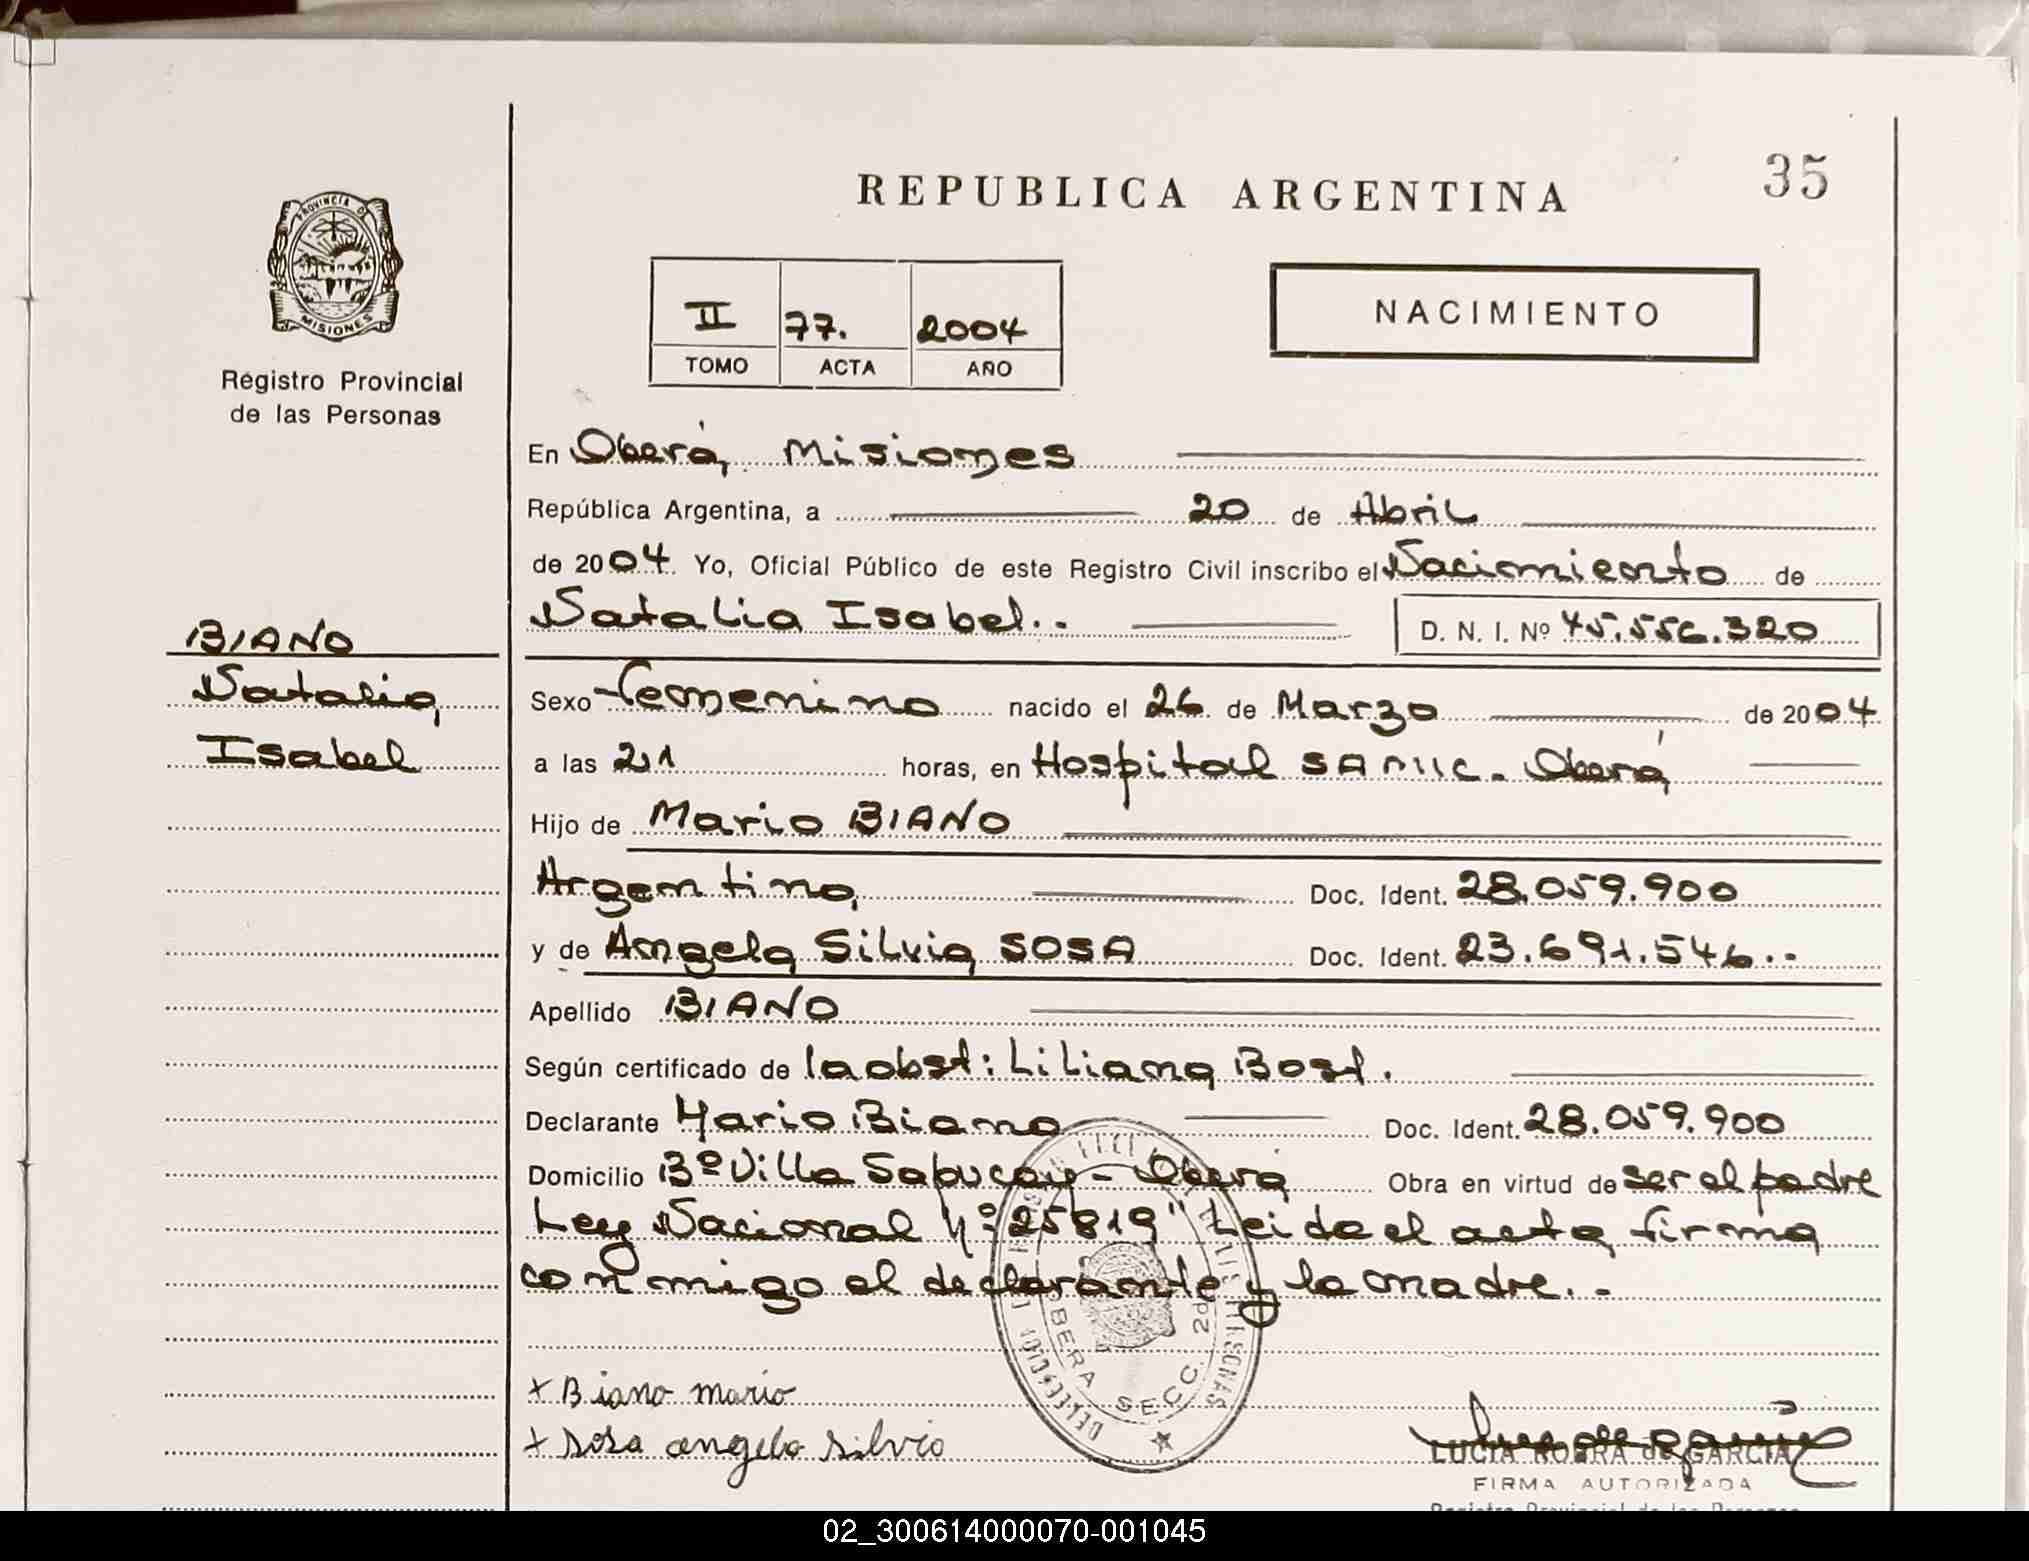 REPUBLICA ARGENTINA
35
PROVINCIA DE
MISIONES
Registro Provincial
de las Personas
II 77. 2004
TOMO ACTA AÑO
NACIMIENTO
En Oberá, Misiones
República Argentina, a 20 de Abril
de 2004 Yo, Oficial Público de este Registro Civil inscribo el Nacimiento de
Natalia Isabel..
D. N. I. Nº 45.556.320
BIANO
Natalia
Isabel
Sexo femenino nacido el 26 de Marzo de 2004
a las 21 horas, en Hospital SAMIC - Oberá
Hijo de Mario BIANO
Argentino, Doc. Ident. 28.059.900
y de Angela Silvia SOSA Doc. Ident. 23.691.546..
Apellido BIANO
Según certificado de la obst: Liliana Bost.
Declarante Mario Biano Doc. Ident. 28.059.900
Domicilio Bº Villa Sapucay - Oberá Obra en virtud de ser el padre
Ley Nacional Nº 25819" Leida el acta, firma
conmigo el declarante y la madre..
OBERA SECC. 2da
x Biano mario
x Sosa angela Silvia
LUCIA de GARCIA
FIRMA AUTORIZADA
Registro Provincial de las Personas
02_300614000070-001045